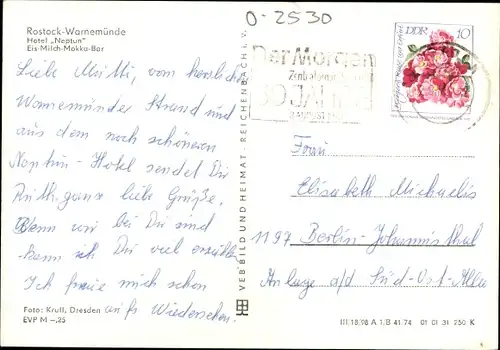 O-2530
Rostock-Warnemünde
Hotel „Neptun"
Eis-Milch-Mokka-Bar
Liebe Mutti, vom herrlichen
Warnemünder Strand und
aus dem noch schöneren
Neptun-Hotel sendet Dir
Ruth ganz liebe Grüße.
Wenn wir bei Dir sind
kann ich Dir viel erzählen
Ich freue mich schon
aufs Wiedersehen.
Foto: Krull, Dresden
EVP M –,25
VEB BILD UND HEIMAT · REICHENBACH i. V.
Der Morgen
30 JAHRE
DDR 10
Frau
Elisabeth Michaelis
1197 Berlin-Johannisthal
Anlage a/d Süd-Ost-Allee
III 18/98 A 1, B 41/74 01 01 31 250 K